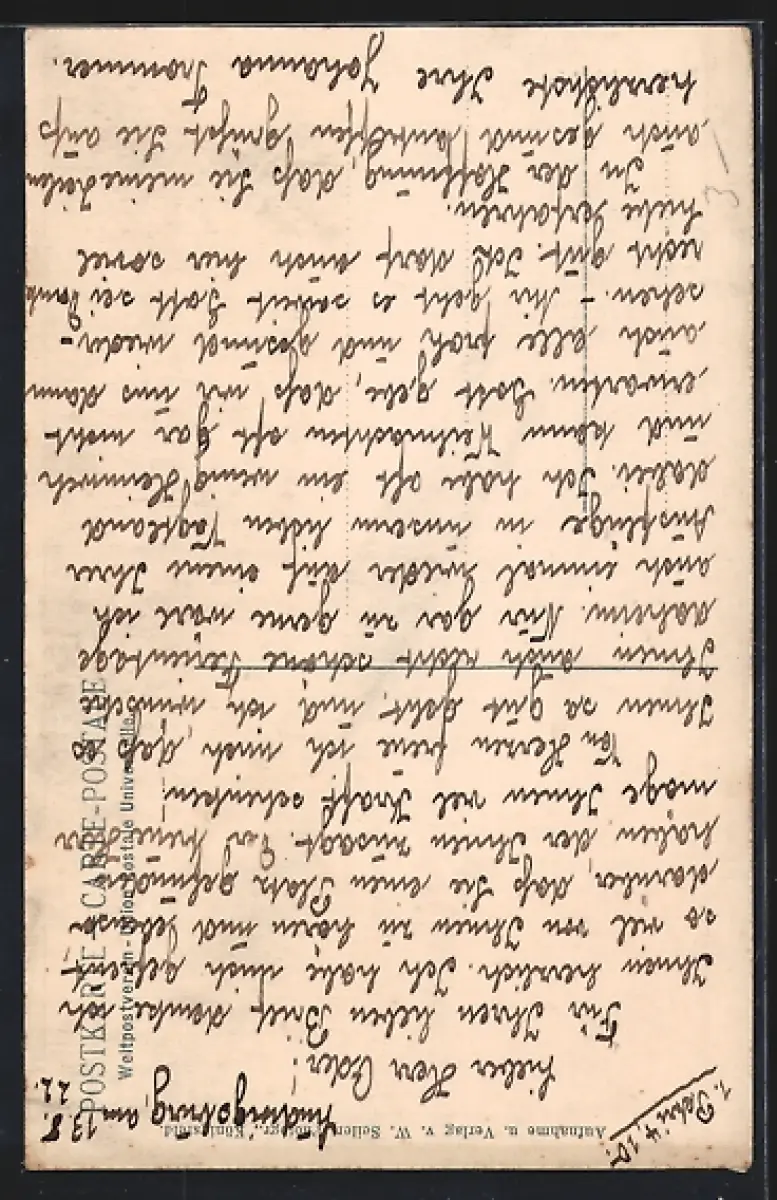 Ludwigsburg, am 13. 8. 22.
1. Petri 4. 10.
Lieber Herr Oder!
Für Ihren lieben Brief danke ich
Ihnen herzlich. Ich habe mich gefreut,
so viel von Ihnen zu hören und besonders
darüber, daß Sie einen Platz gefunden
haben der Ihnen zusagt. Der treue Herr
möge Ihnen viel Kraft schenken.
Von Herzen freue ich mich, daß es
Ihnen so gut geht, und ich wünsche
Ihnen auch recht schöne Ferientage
daheim. Nur gar zu gerne wäre ich
auch einmal wieder auf einem Ihrer
Ausflüge in unserm lieben Vogtland
dabei. Ich habe oft ein wenig Heimweh
und kann Weihnachten oft gar nicht
erwarten. Gott gebe, daß wir uns dann
auch alle froh und gesund wieder-
sehen. – Mir geht es soweit Gott sei Dank
recht gut. Ich darf auch hier soviel
Liebe erfahren.
In der Hoffnung, daß Sie meine Zeilen
auch gesund antreffen grüßt Sie aufs
herzlichste Ihre Johanna Trommer.
POSTKARTE - CARTE-POSTALE
Weltpostverein - Union Postale Universelle
Aufnahme u. Verlag v. W. Seiler, Photogr., Königsfeld.